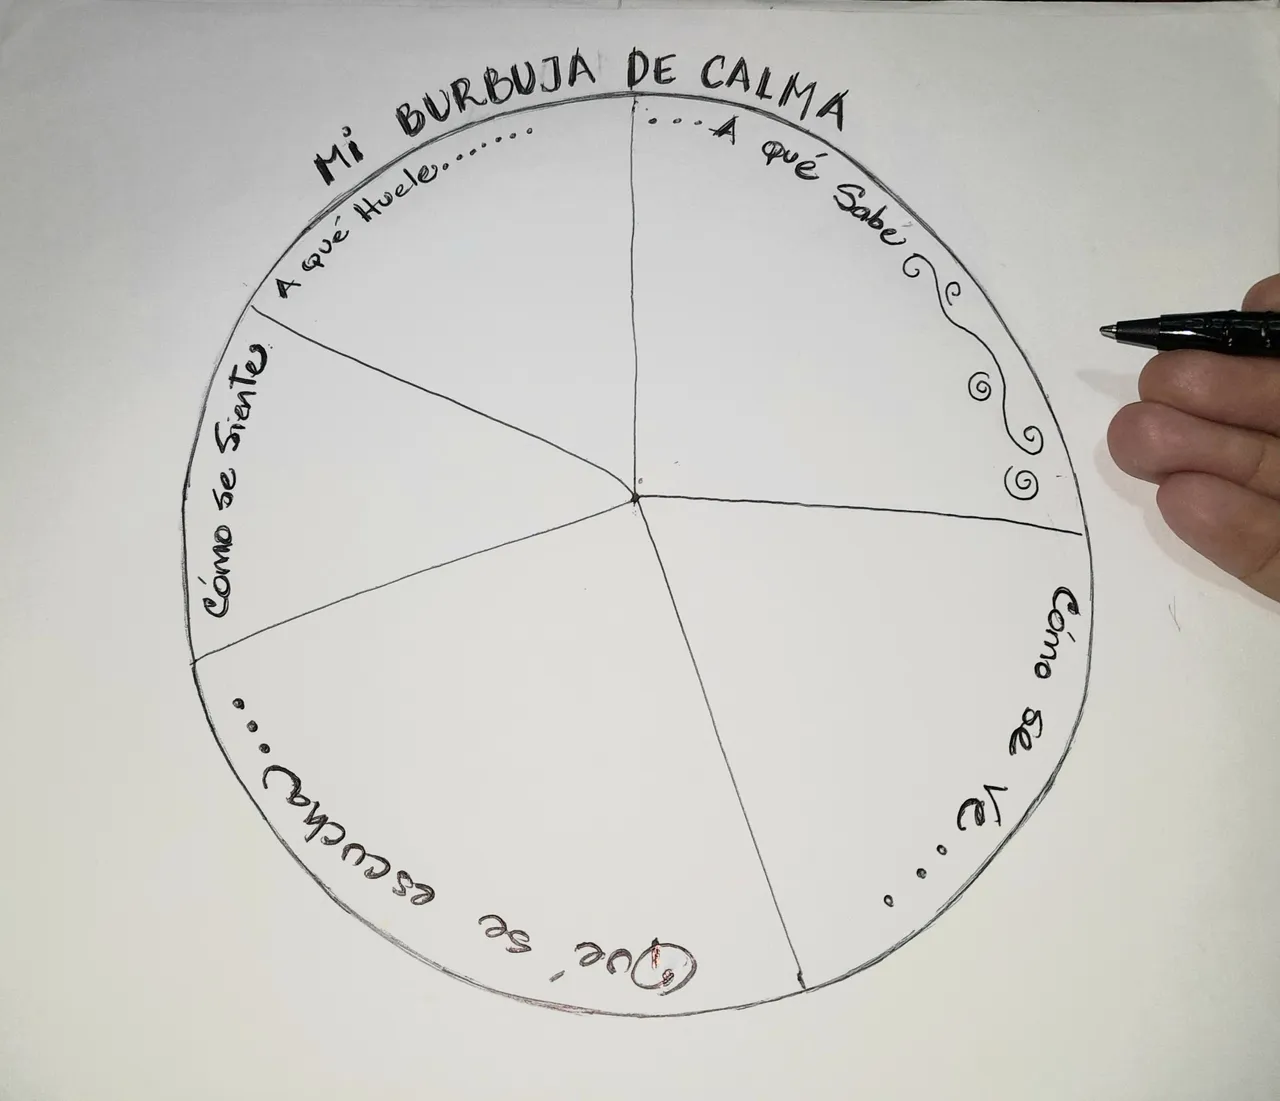 Mi BURBUJA DE CALMA
A qué Huele.......
....A qué Sabé
Cómo se Ve....
Qué se escucha....
Cómo se Siente